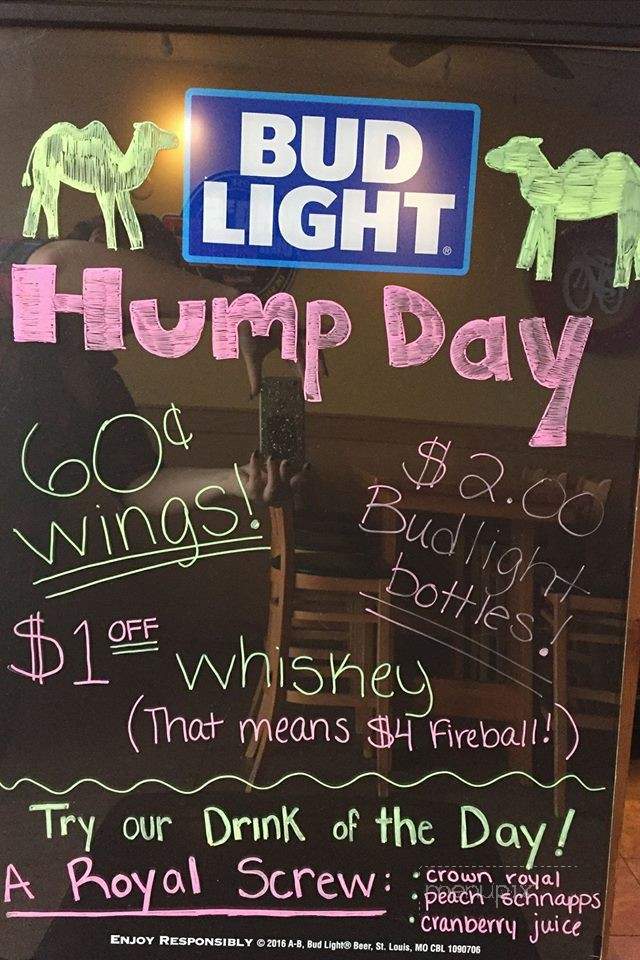 BUD
LIGHT®
Hump Day
60¢
wings!
$2.00
Budlight
bottles!
$1 OFF whiskey
(That means $4 Fireball!)
Try our Drink of the Day!
A Royal Screw:
• crown royal
• peach schnapps
• cranberry juice
menupix
ENJOY RESPONSIBLY © 2016 A-B, Bud Light® Beer, St. Louis, MO CBL 1090706